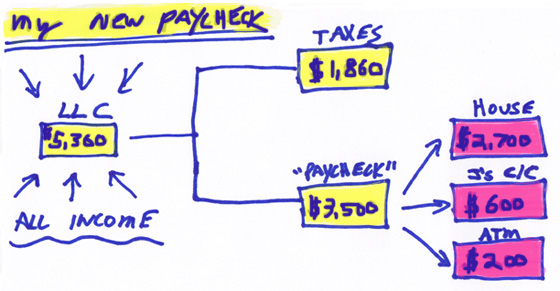 my NEW PAYCHECK
LLC
$5,360
ALL INCOME
TAXES
$1,860
"PAYCHECK"
$3,500
HOUSE
$2,700
J's C/C
$600
ATM
$200